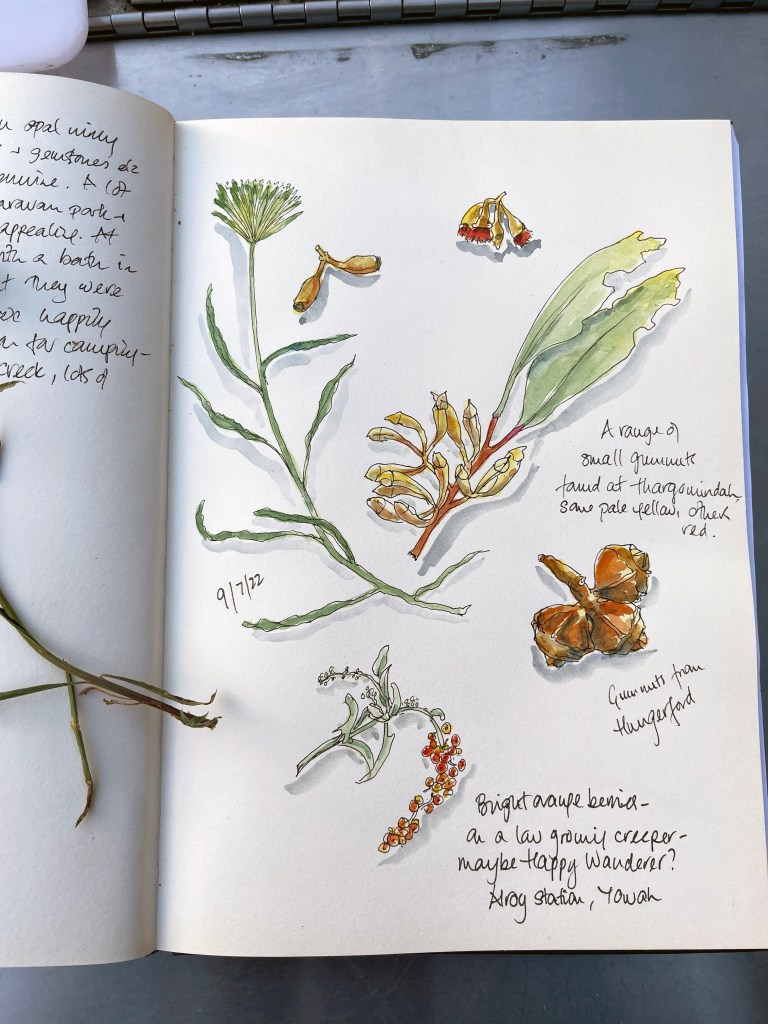 opal mining
+ gemstones etc
genuine. A lot
caravan park +
appealing. At
with a bath in
they were
happily
for camping -
creek, lots of
A range of
small gumnuts
found at Thargomindah,
some pale yellow, others
red.
9/7/22
Gumnuts from
Hungerford
Bright orange berries -
on a low growing creeper -
maybe Happy Wanderer?
Alroy Station, Yowah